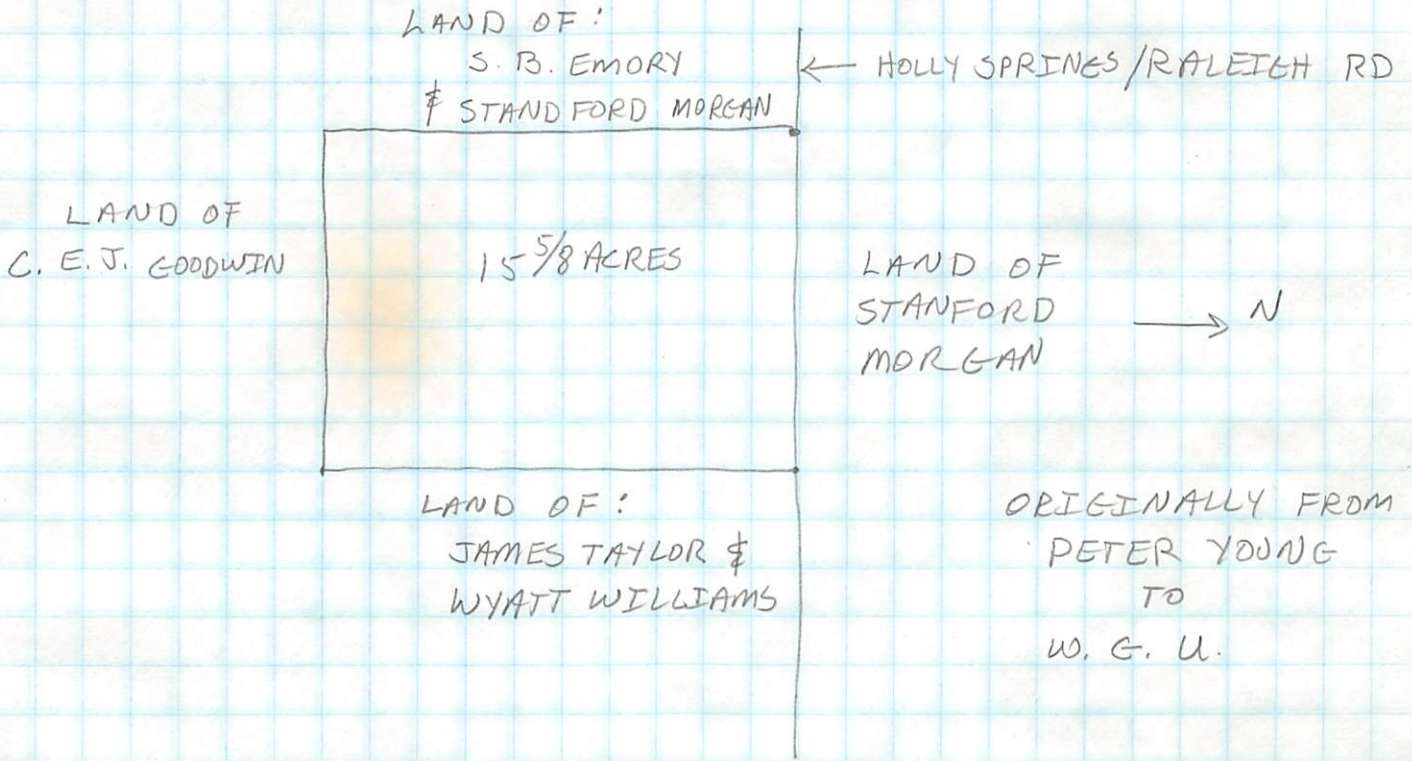 LAND OF:
S. B. EMORY
& STANDFORD MORGAN
← HOLLY SPRINGS/RALEIGH RD
LAND OF
C. E. J. GOODWIN
15 5/8 ACRES
LAND OF
STANFORD
MORGAN
→ N
LAND OF:
JAMES TAYLOR &
WYATT WILLIAMS
ORIGINALLY FROM
PETER YOUNG
TO
W. G. U.